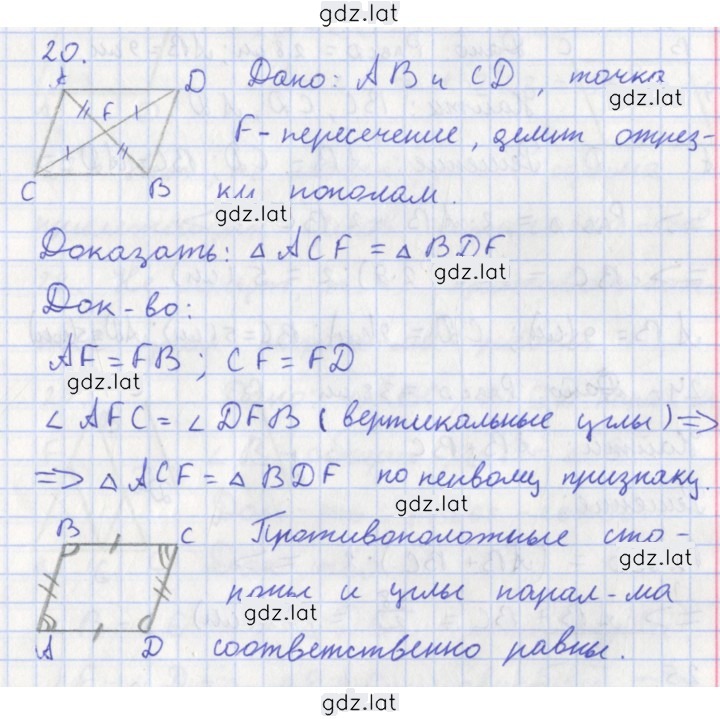 gdz.lat
20.
A D Дано: AB и CD, точка
gdz.lat
F F - пересечение, делит отрез-
C B ки пополам.
gdz.lat
Доказать: △ ACF = △ BDF
gdz.lat
Док-во:
AF = FB ; CF = FD
gdz.lat
∠ AFC = ∠ DFB ( вертикальные углы ) =>
=> △ ACF = △ BDF по первому признаку.
gdz.lat
B C Противоположные сто-
gdz.lat
роны и углы парал-ма
gdz.lat
A D соответственно равны.
gdz.lat